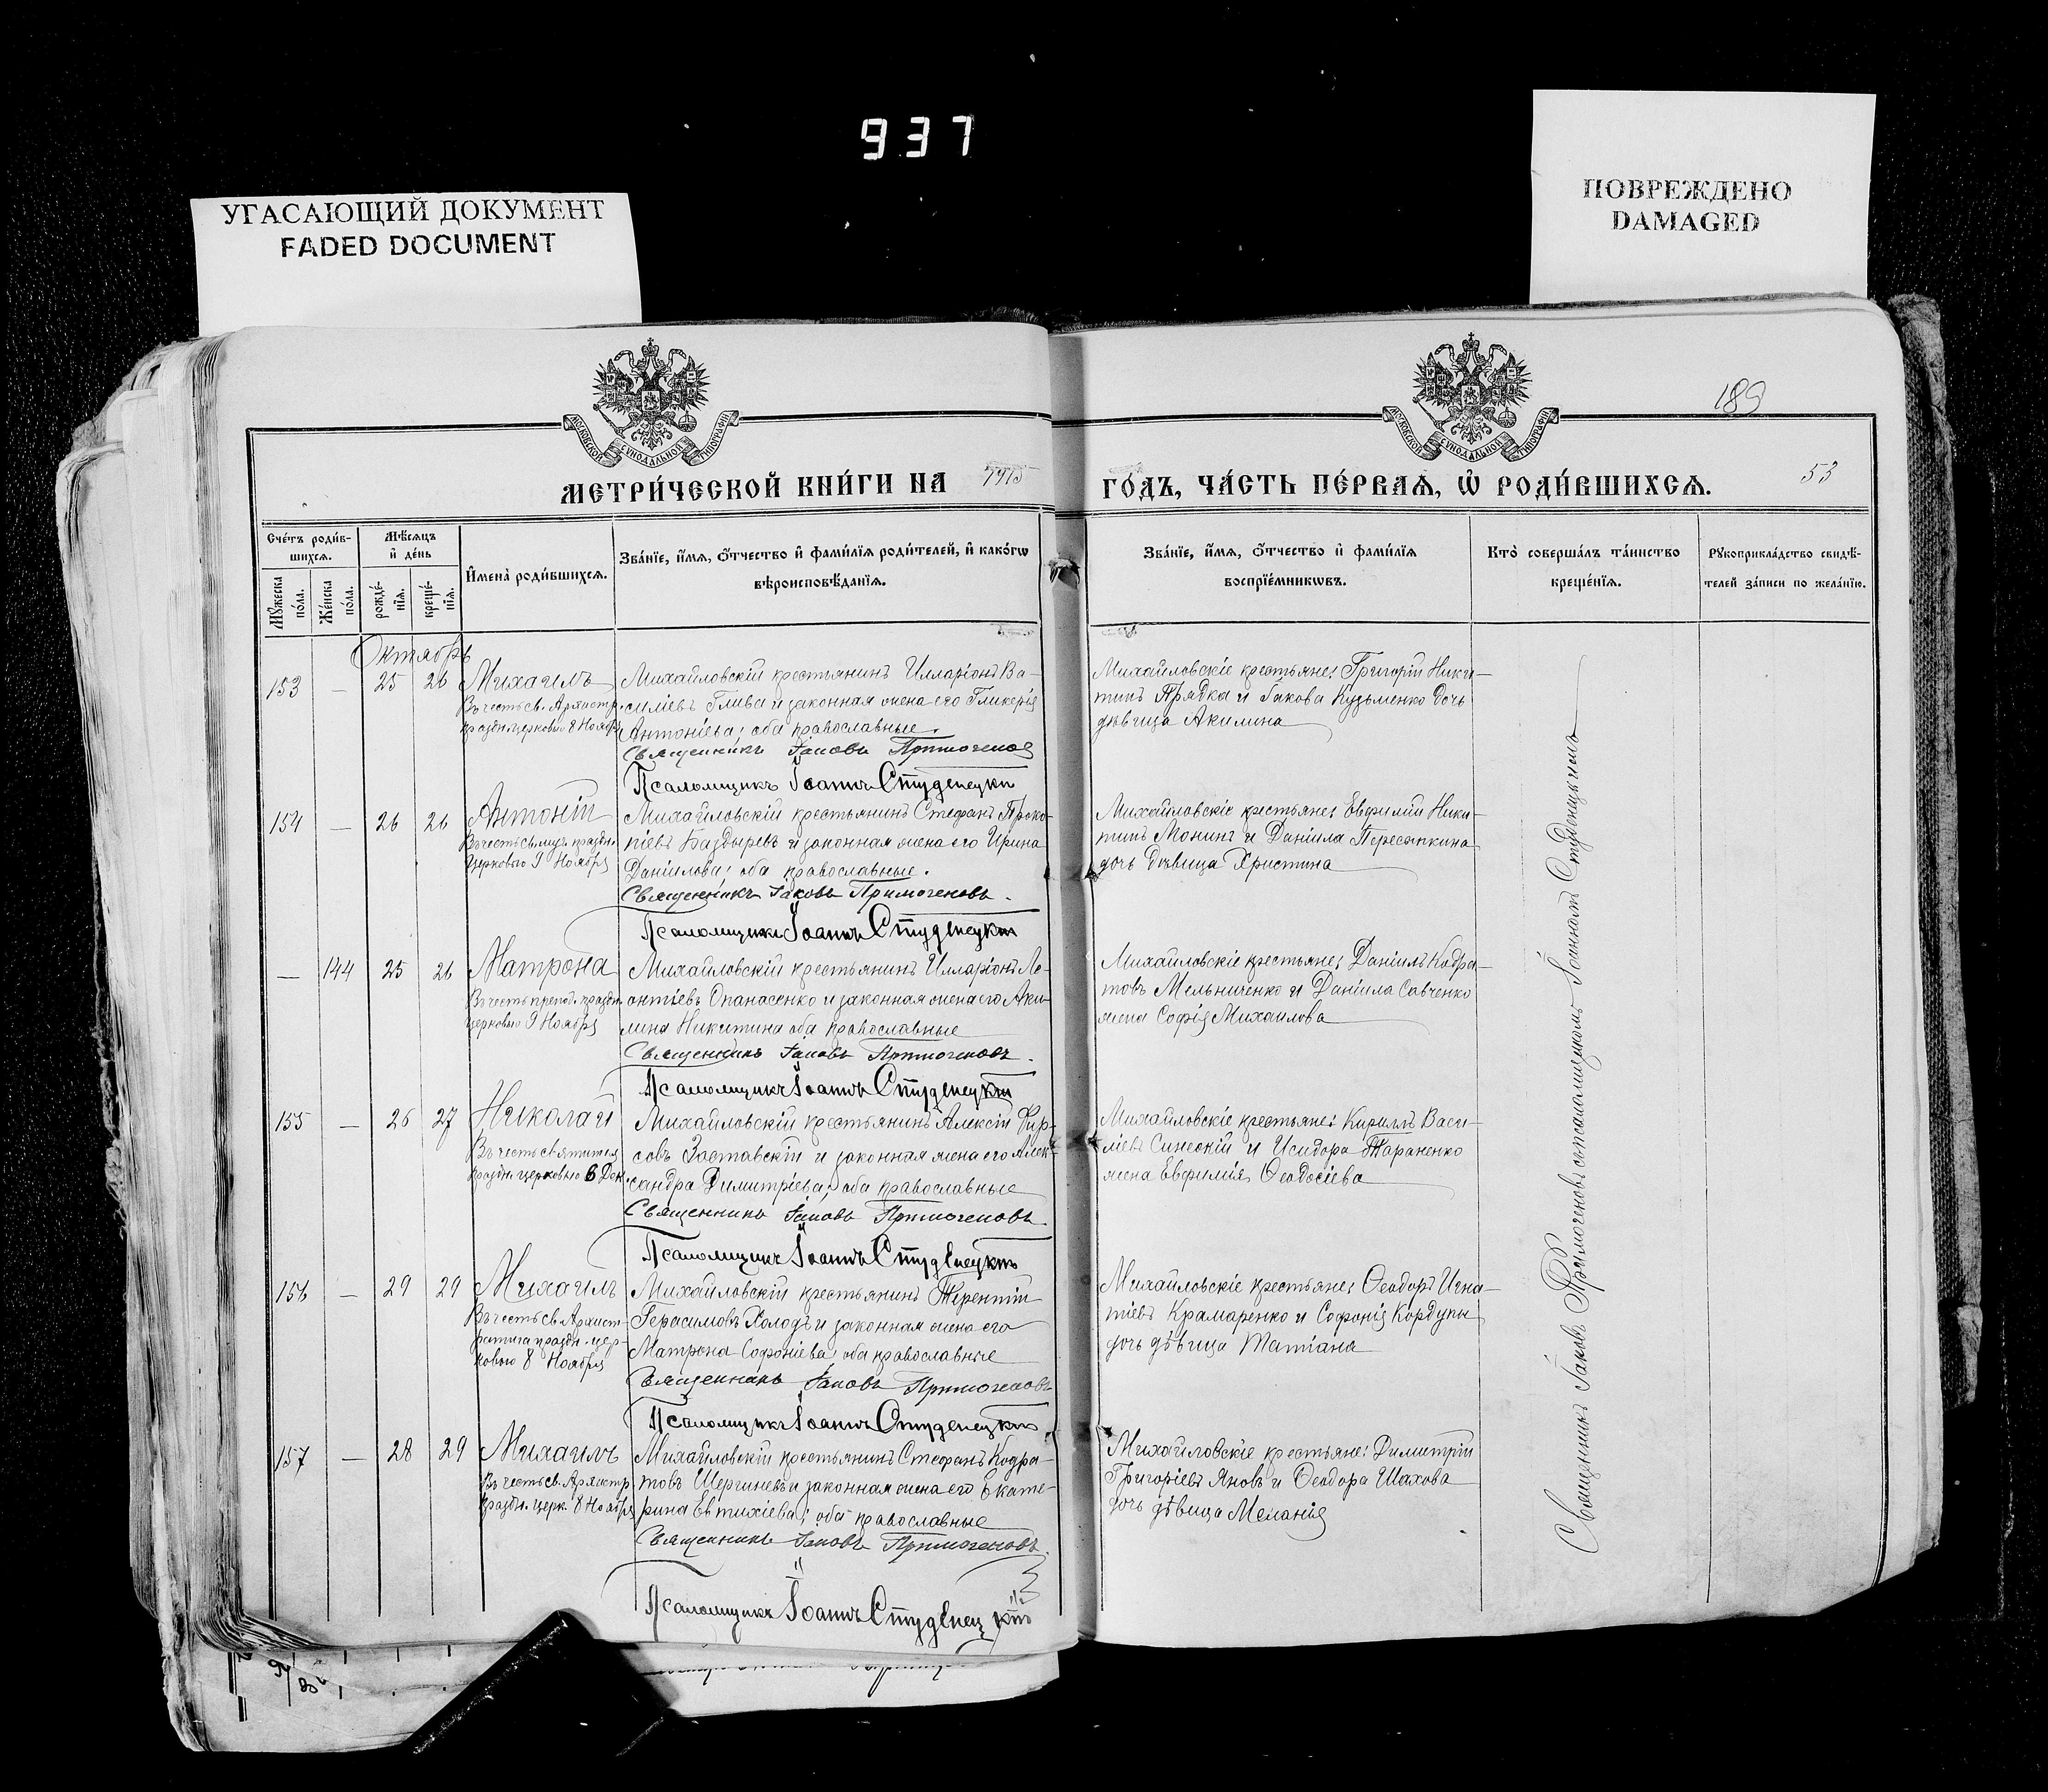 937
УГАСАЮЩИЙ ДОКУМЕНТ
FADED DOCUMENT
ПОВРЕЖДЕНО
DAMAGED
МОСКОВСКОЙ СѴНОДАЛЬНОЙ ТИПОГРАФІИ
МОСКОВСКОЙ СѴНОДАЛЬНОЙ ТИПОГРАФІИ
189
МЕТРИ́ЧЕСКОЙ КНИ́ГИ НА 1915
ГО́ДЪ, ЧА́СТЬ ПЕ́РВАѦ, Ѡ҆ РОДИ́ВШИХСѦ.
53
Сче́тъ роди́в-
шихсѧ.
Мꙋ́жеска по́ла.
Же́нска по́ла.
Мѣ́сѧцъ
и҆ де́нь
рожде́-
нїѧ.
креще́-
нїѧ.
И҆мена̀ роди́вшихсѧ.
Зва́нїе, и҆́мѧ, ѻ҆́тчество и҆ фами́лїѧ роди́телей, и҆ како́гѡ
вѣроисповѣ́данїѧ.
Зва́нїе, и҆́мѧ, ѻ҆́тчество и҆ фами́лїѧ
воспрїе́мникѡвъ.
Кто̀ соверша́лъ та́инство
креще́нїѧ.
Рꙋкоприкла́дство свидѣ́-
телей за́писи по жела́нїю.
Октябрь
153 — 25 26 Михаилъ
Въ честь св. Архистр.
праздн. церковью 8 Ноября
Михайловскій крестьянинъ Илларіонъ Ва-
силіевъ Глива и законная жена его Гликерія
Антоніева; оба православные.
Священникъ Іаковъ Примогеновъ
Псаломщикъ Іоаннъ Студенецкій
Михайловскіе крестьяне: Григорій Ники-
тинъ Прядка и Іакова Кузьменко дочь
дѣвица Акилина
154 — 26 26 Антоній
праздн.
церковью 9 Ноября
Михайловскій крестьянинъ Стефанъ Проко-
піевъ Баздыревъ и законная жена его Ирина
Даніилова; оба православные.
Священникъ Іаковъ Примогеновъ.
Псаломщикъ Іоаннъ Студенецкій
Михайловскіе крестьяне: Евфимій Ники-
тинъ Монинъ и Даніила Пересыпкина
дочь дѣвица Христина
— 144 25 26 Матрона
Въ честь препод. праздн.
церковью 9 Ноября
Михайловскій крестьянинъ Илларіонъ Ле-
онтіевъ Опанасенко и законная жена его Аки-
лина Никитина оба православные
Священникъ Іаковъ Примогеновъ.
Псаломщикъ Іоаннъ Студенецкій
Михайловскіе крестьяне: Даніилъ Кодра-
товъ Мельниченко и Даніила Савченко
жена Софія Михаилова
155 — 26 27 Николай
Въ честь святителя
праздн. церковью 6 Дек.
Михайловскій крестьянинъ Алексій Фир-
совъ Заставскій и законная жена его Алек-
сандра Димитріева; оба православные
Священникъ Іаковъ Примогеновъ.
Псаломщикъ Іоаннъ Студенецкій
Михайловскіе крестьяне: Кириллъ Васи-
ліевъ Синескій и Исидора Тараненко
жена Евфимія Ѳеодосіева
156 — 29 29 Михаилъ
Въ честь св. Архист-
ратига праздн. цер-
ковью 8 Ноября
Михайловскій крестьянинъ Терентій
Герасимовъ Холодъ и законная жена его
Матрона Софоніева; оба православные
Священникъ Іаковъ Примогеновъ
Псаломщикъ Іоаннъ Студенецкій
Михайловскіе крестьяне: Ѳеодоръ Игна-
тіевъ Крамаренко и Софонія Кордупы
дочь дѣвица Татіана
157 — 28 29 Михаилъ
Въ честь св. Архистр.
праздн. церк. 8 Ноября
Михайловскій крестьянинъ Стефанъ Кодра-
товъ Шергиневъ и законная жена его Екате-
рина Евтихіева; оба православные
Священникъ Іаковъ Примогеновъ.
Псаломщикъ Іоаннъ Студенецкій
Михайловскіе крестьяне: Димитрій
Григоріевъ Яновъ и Ѳеодора Шахова
дочь дѣвица Меланія
Священникъ Іаковъ Примогеновъ съ псаломщикомъ Іоанномъ Студенецкимъ